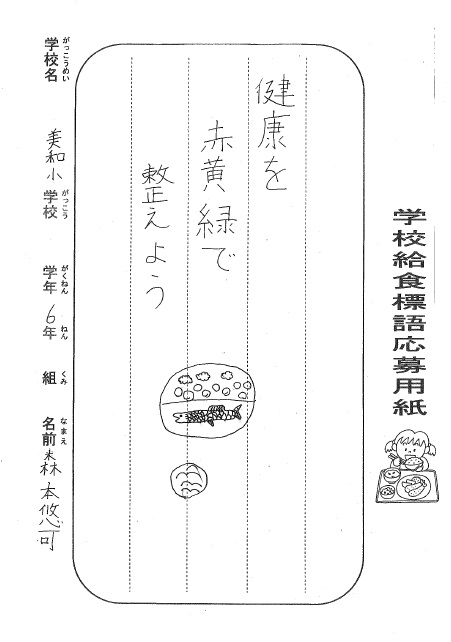 学校給食標語応募用紙
健康を
赤黄緑で
整えよう
学校名 がっこうめい 美和小 学校 がっこう 学年 がくねん 6年 ねん 組 くみ 名前 なまえ 森本悠可